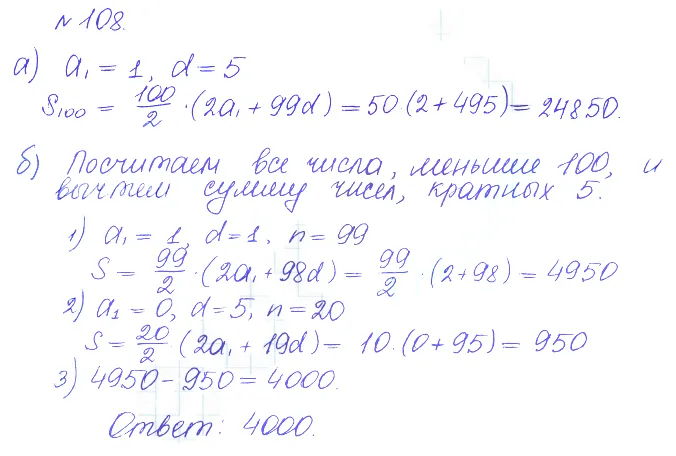 № 108.
а) a₁ = 1, d = 5
S₁₀₀ = 100/2 · (2a₁ + 99d) = 50(2 + 495) = 24850.
б) Посчитаем все числа, меньшие 100, и
вычтем сумму чисел, кратных 5.
1) a₁ = 1, d = 1, n = 99
S = 99/2 · (2a₁ + 98d) = 99/2 · (2 + 98) = 4950
2) a₁ = 0, d = 5, n = 20
S = 20/2 (2a₁ + 19d) = 10 · (0 + 95) = 950
3) 4950 - 950 = 4000.
Ответ: 4000.